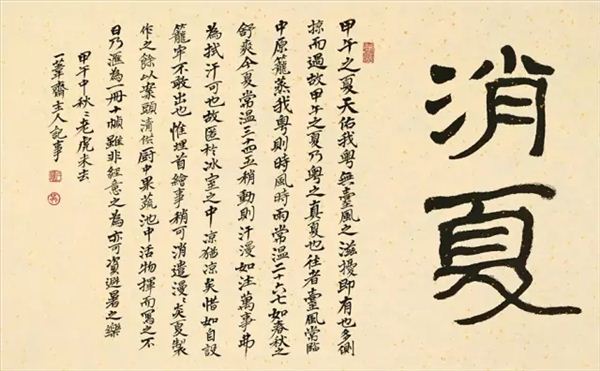 消夏
甲午之夏天佑我粤無臺風之滋擾即有也多側
掠而過故甲午之夏乃粤之真夏也往者臺風常臨
中原籠蒸我粤則時風時雨常温二十六七如春秋之
舒爽今夏常温三十四五稍動則汗漫如注萬事弗
為拭汗可也故匿於冰室之中凉猶凉矣惜如自設
籠牢不敢出也惟埋首繪事稍可消遣漫〻炎夏製
作之餘以案頭清供厨中果蔬池中活物揮而寫之不
日乃滙為一冊十幀雖非經意之為亦可資避暑之樂
甲午中秋〻老虎未去
一葦齋主人記事